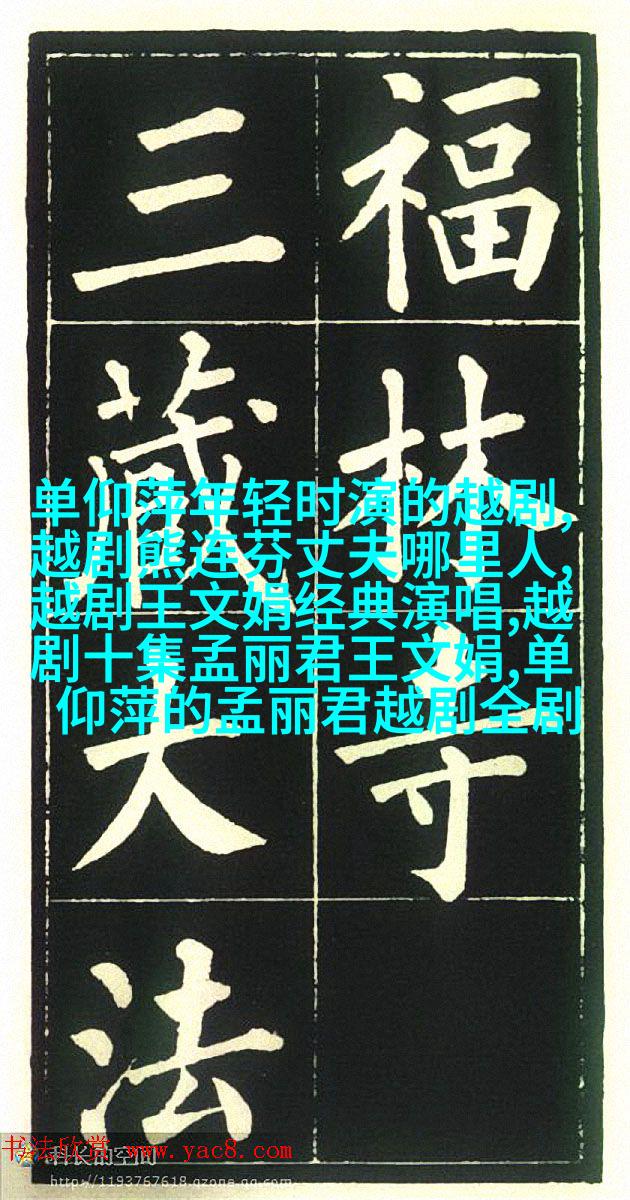 福林寺
三藏大法
单仰萍年轻时演的越剧,
越剧熊连芬丈夫哪里人,
越剧王文娟经典演唱,越
剧十集孟丽君王文娟,单
仰萍的孟丽君越剧全剧
书法欣赏 www.yac8.com
科长的空间
http://1193767618.qzone.qq.com